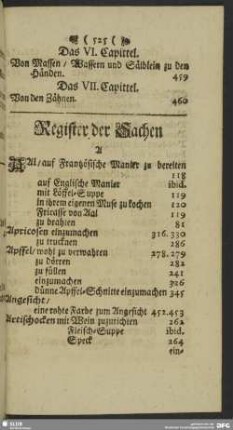 ( 525 (
Das VI. Capittel.
Von Massen / Wassern und Sälblein zu den
Händen. 459
Das VII. Capittel.
Von den Zähnen. 460
Register der Sachen
A
AAl / auf Frantzösische Manier zu bereiten
118
auf Englische Manier ibid.
mit Löffel-Suppe 119
in ihrem eigenen Muse zu kochen 120
Fricasse von Aal 119
zu brahten 81
Apricosen einzumachen 316. 330
zu trucknen 286
Apffel / wohl zu verwahren 278. 279
zu dörren 282
zu füllen 241
einzumachen 326
dünne Apffel-Schnitte einzumachen 345
Angesicht /
eine rohte Farbe zum Angesicht 452. 453
Artischocken mit Wein zuzurichten 262
Fleisch-Suppe ibid.
Speck 264
ein-
SLUB
DFG